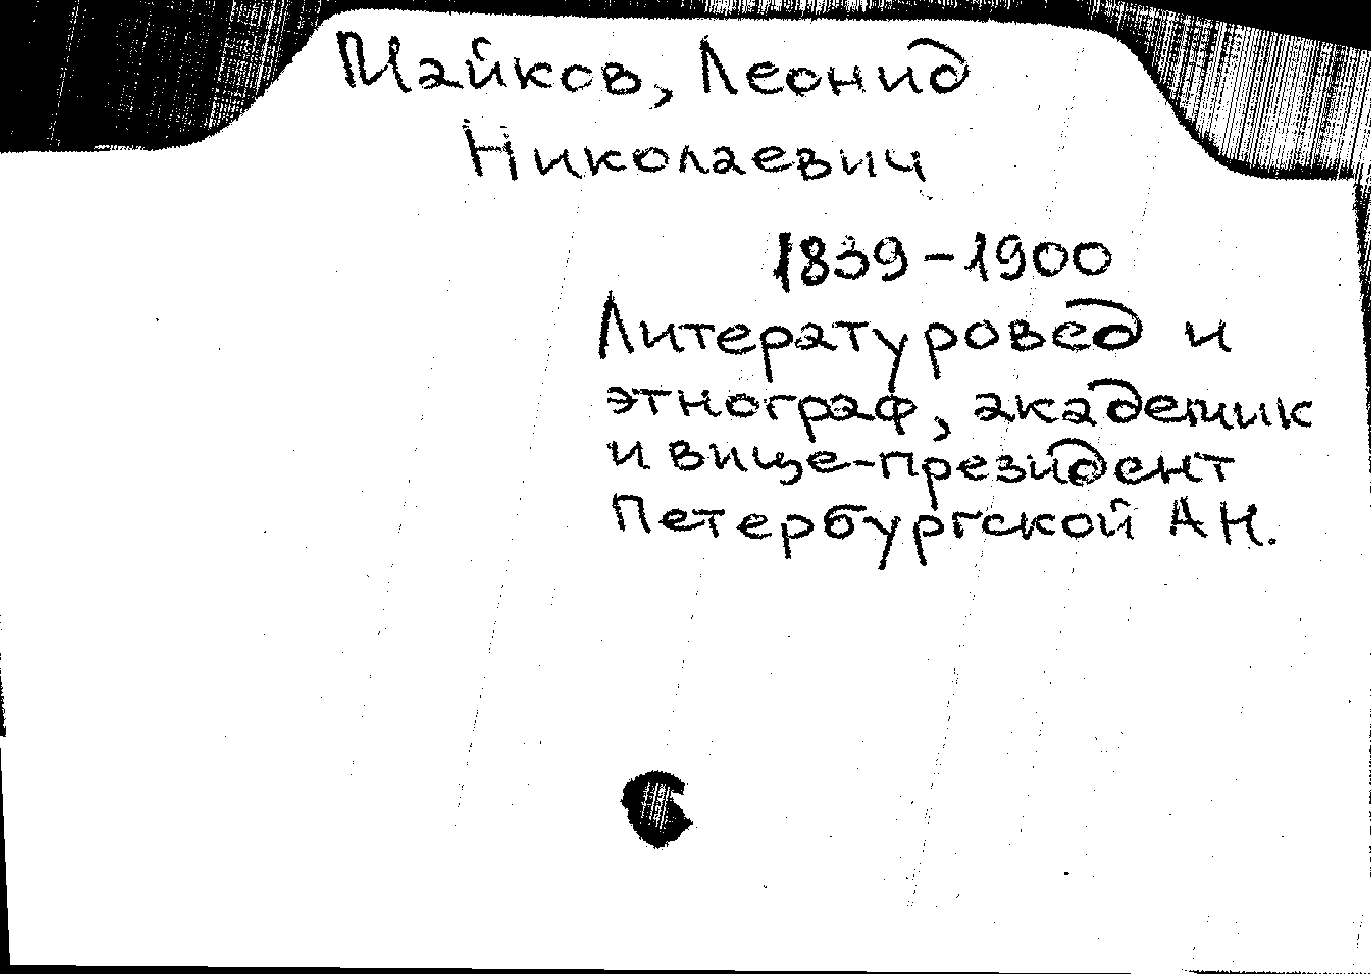 Майков, Леонид
Николаевич
1839-1900
Литературовед и
этнограф, академик
и вице-президент
Петербургской АН.